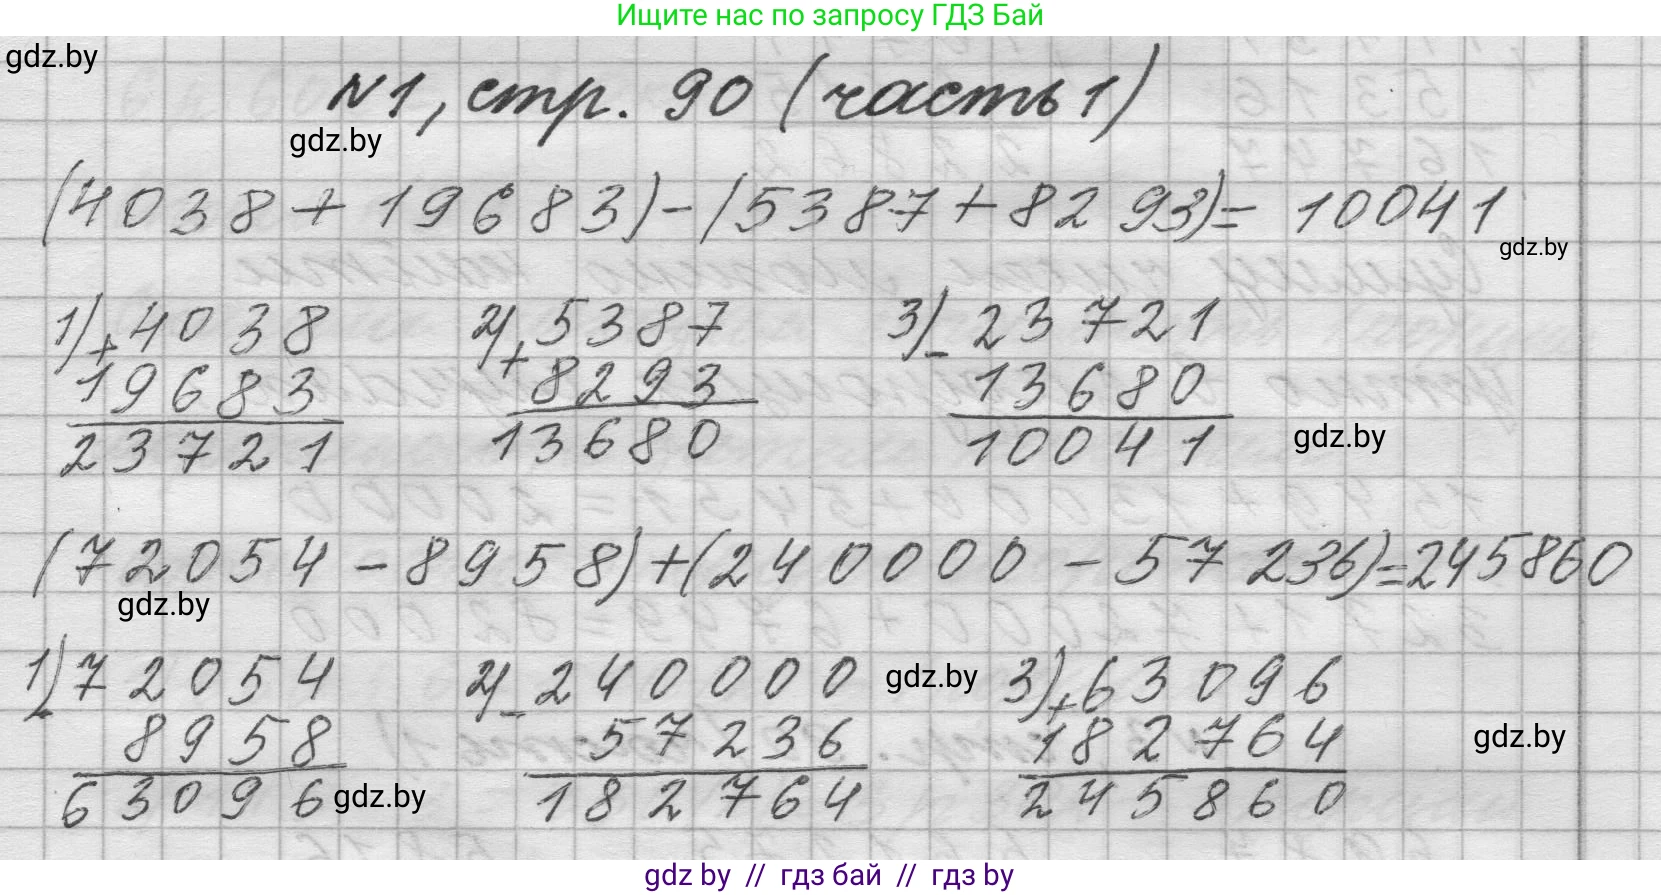 Ищите нас по запросу ГДЗ Бай
gdz.by
№1, стр. 90 (часть 1)
gdz.by
(4038 + 19683) - (5387 + 8293) = 10041
gdz.by
1) + 4038 2) + 5387 3) - 23721
19683 8293 13680
23721 13680 10041
gdz.by
(72054 - 8958) + (240000 - 57236) = 245860
gdz.by
1) - 72054 2) - 240000 gdz.by 3) + 63096
8958 57236 182764 gdz.by
63096 gdz.by 182764 245860
gdz.by // гдз бай // гдз by